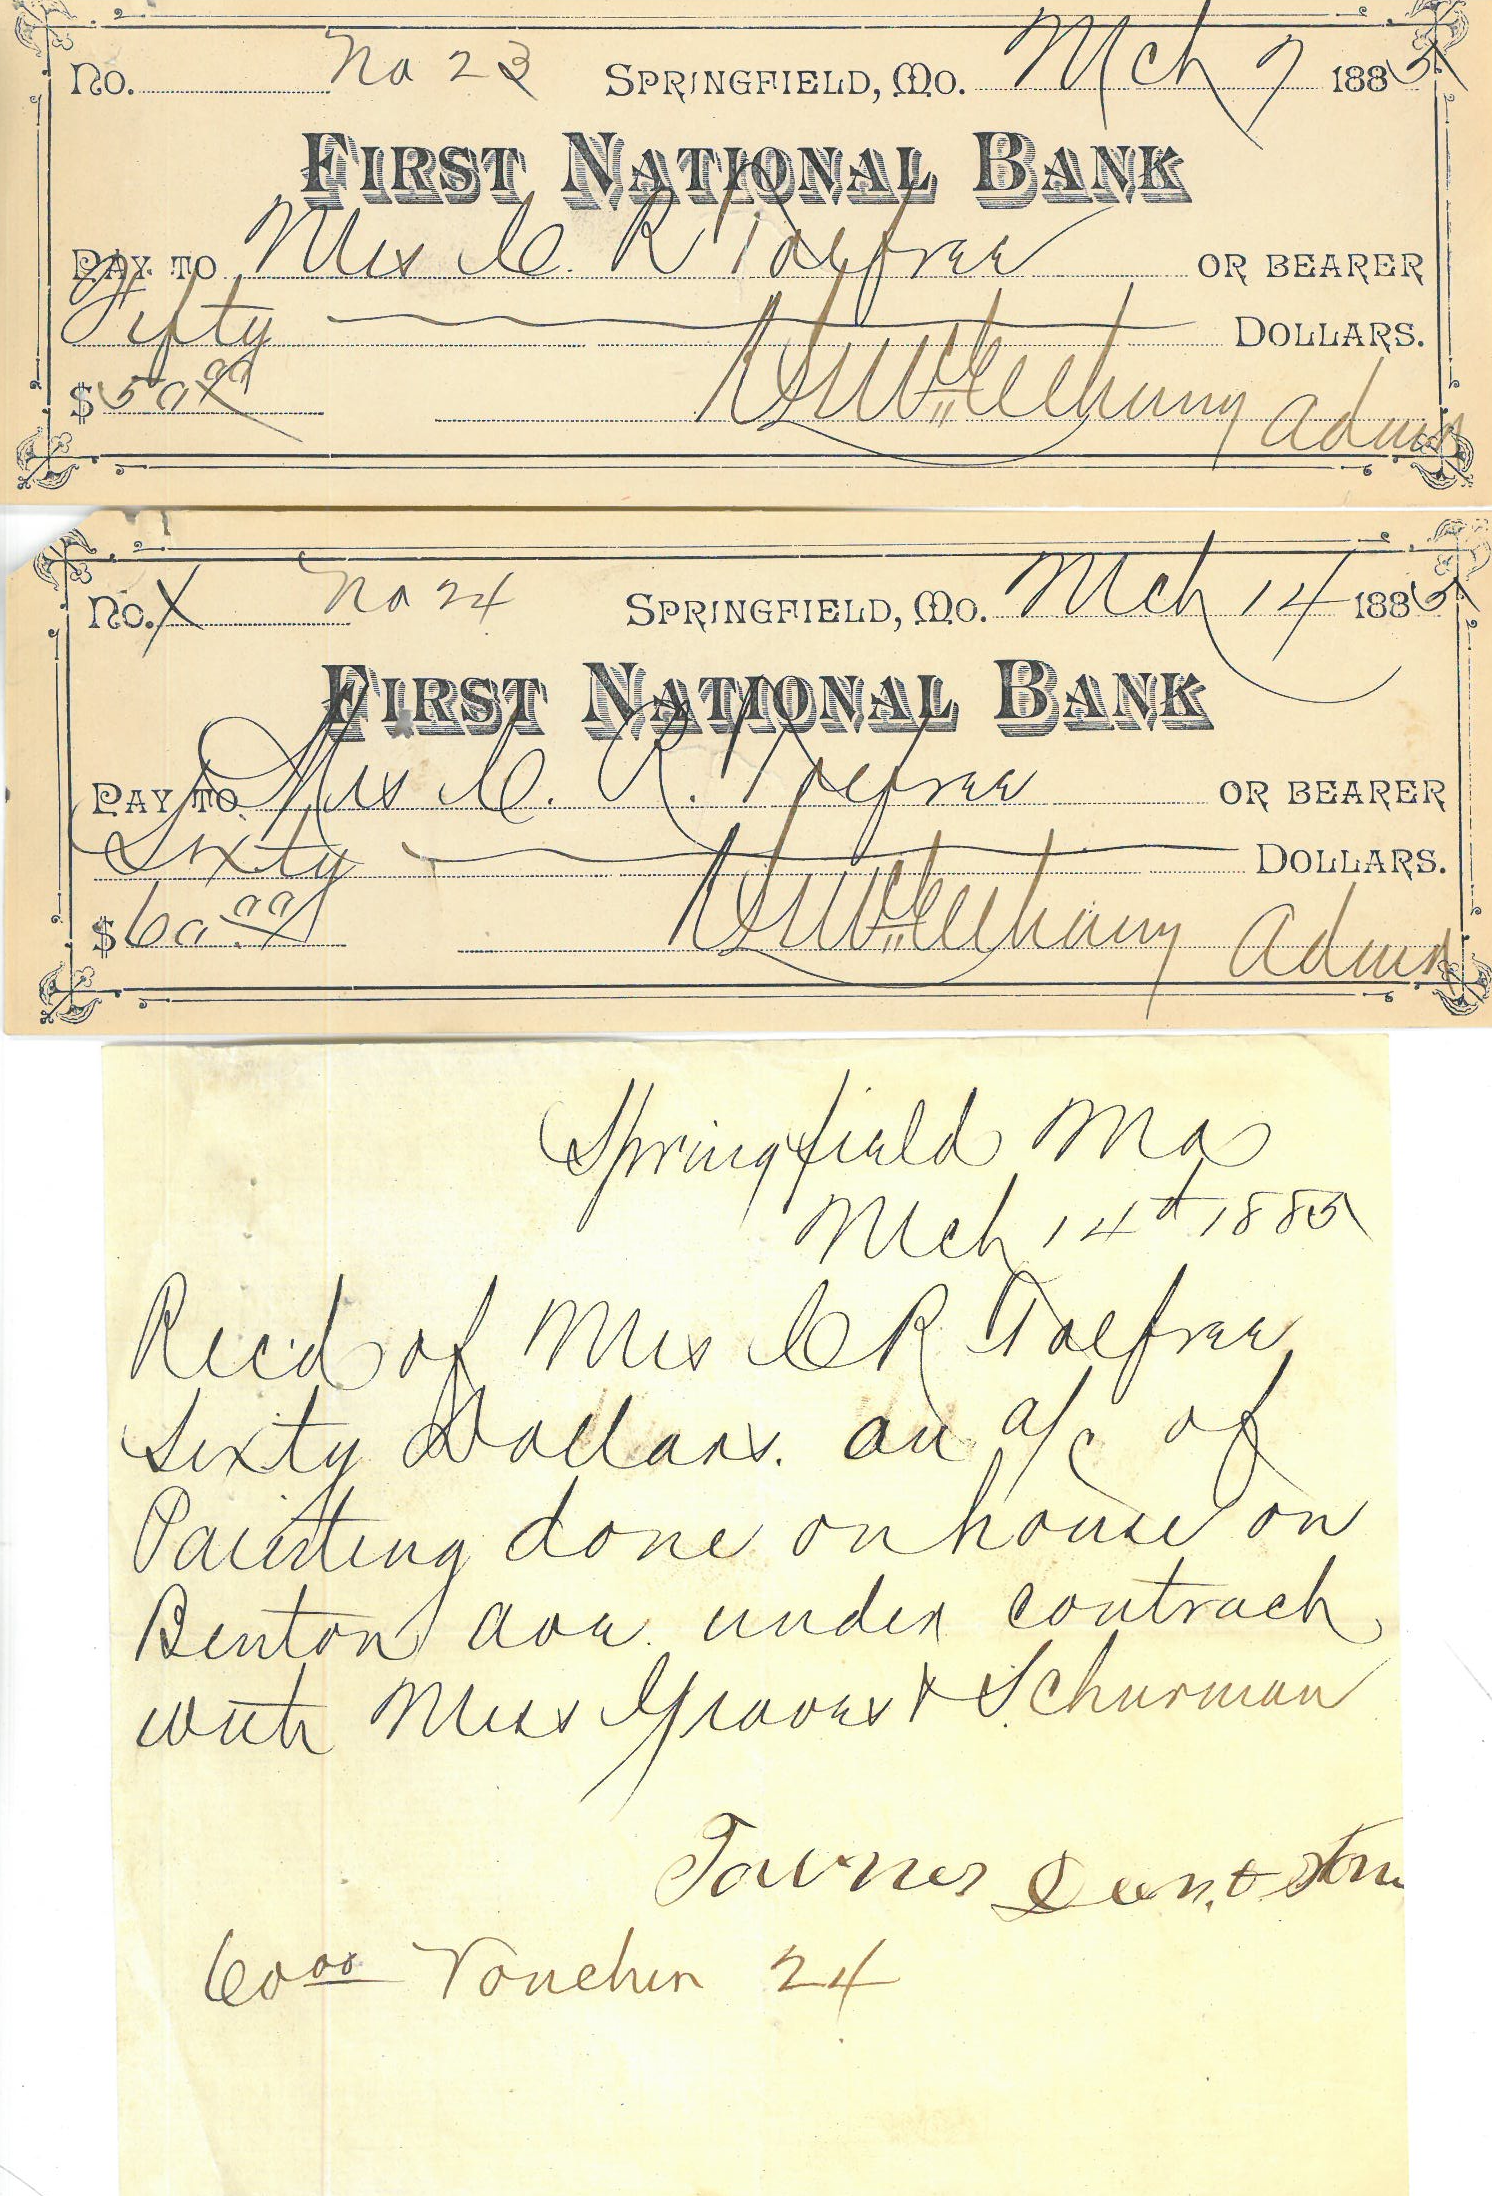 No. No 23 Springfield, Mo. Mch 7 1885
First National Bank
Pay to Mrs C. R Toefree or bearer
Fifty Dollars.
$50.00 Admr
No. X No 24 Springfield, Mo. Mch 14 1885
First National Bank
Pay to Mrs C. R. Toefree or bearer
Sixty Dollars.
$60.00 Admr
Springfield Mo
Mch 14th 1885
Recd of Mrs C R Toefree
Sixty Dollars. on a/c of
Painting done on house on
Benton ave. under contract
with Mess Graves & Schurman
60 00 Voucher 24